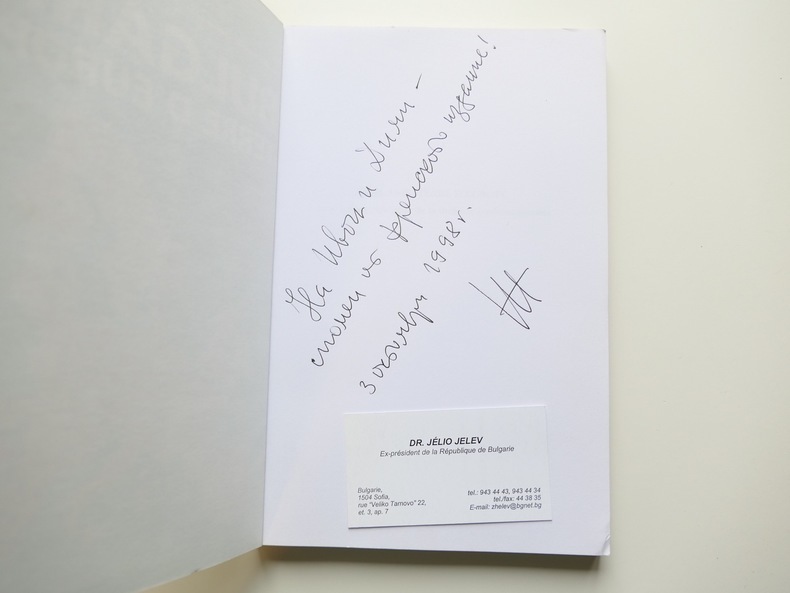 На Ивон и Дили –
спомен от френското издание!
3 октомври 1998 г.
DR. JÉLIO JELEV
Ex-président de la République de Bulgarie
Bulgarie,
1504 Sofia,
rue "Veliko Tarnovo" 22,
et. 3, ap. 7
tel.: 943 44 43, 943 44 34
tel./fax: 44 38 35
E-mail: zhelev@bgnet.bg